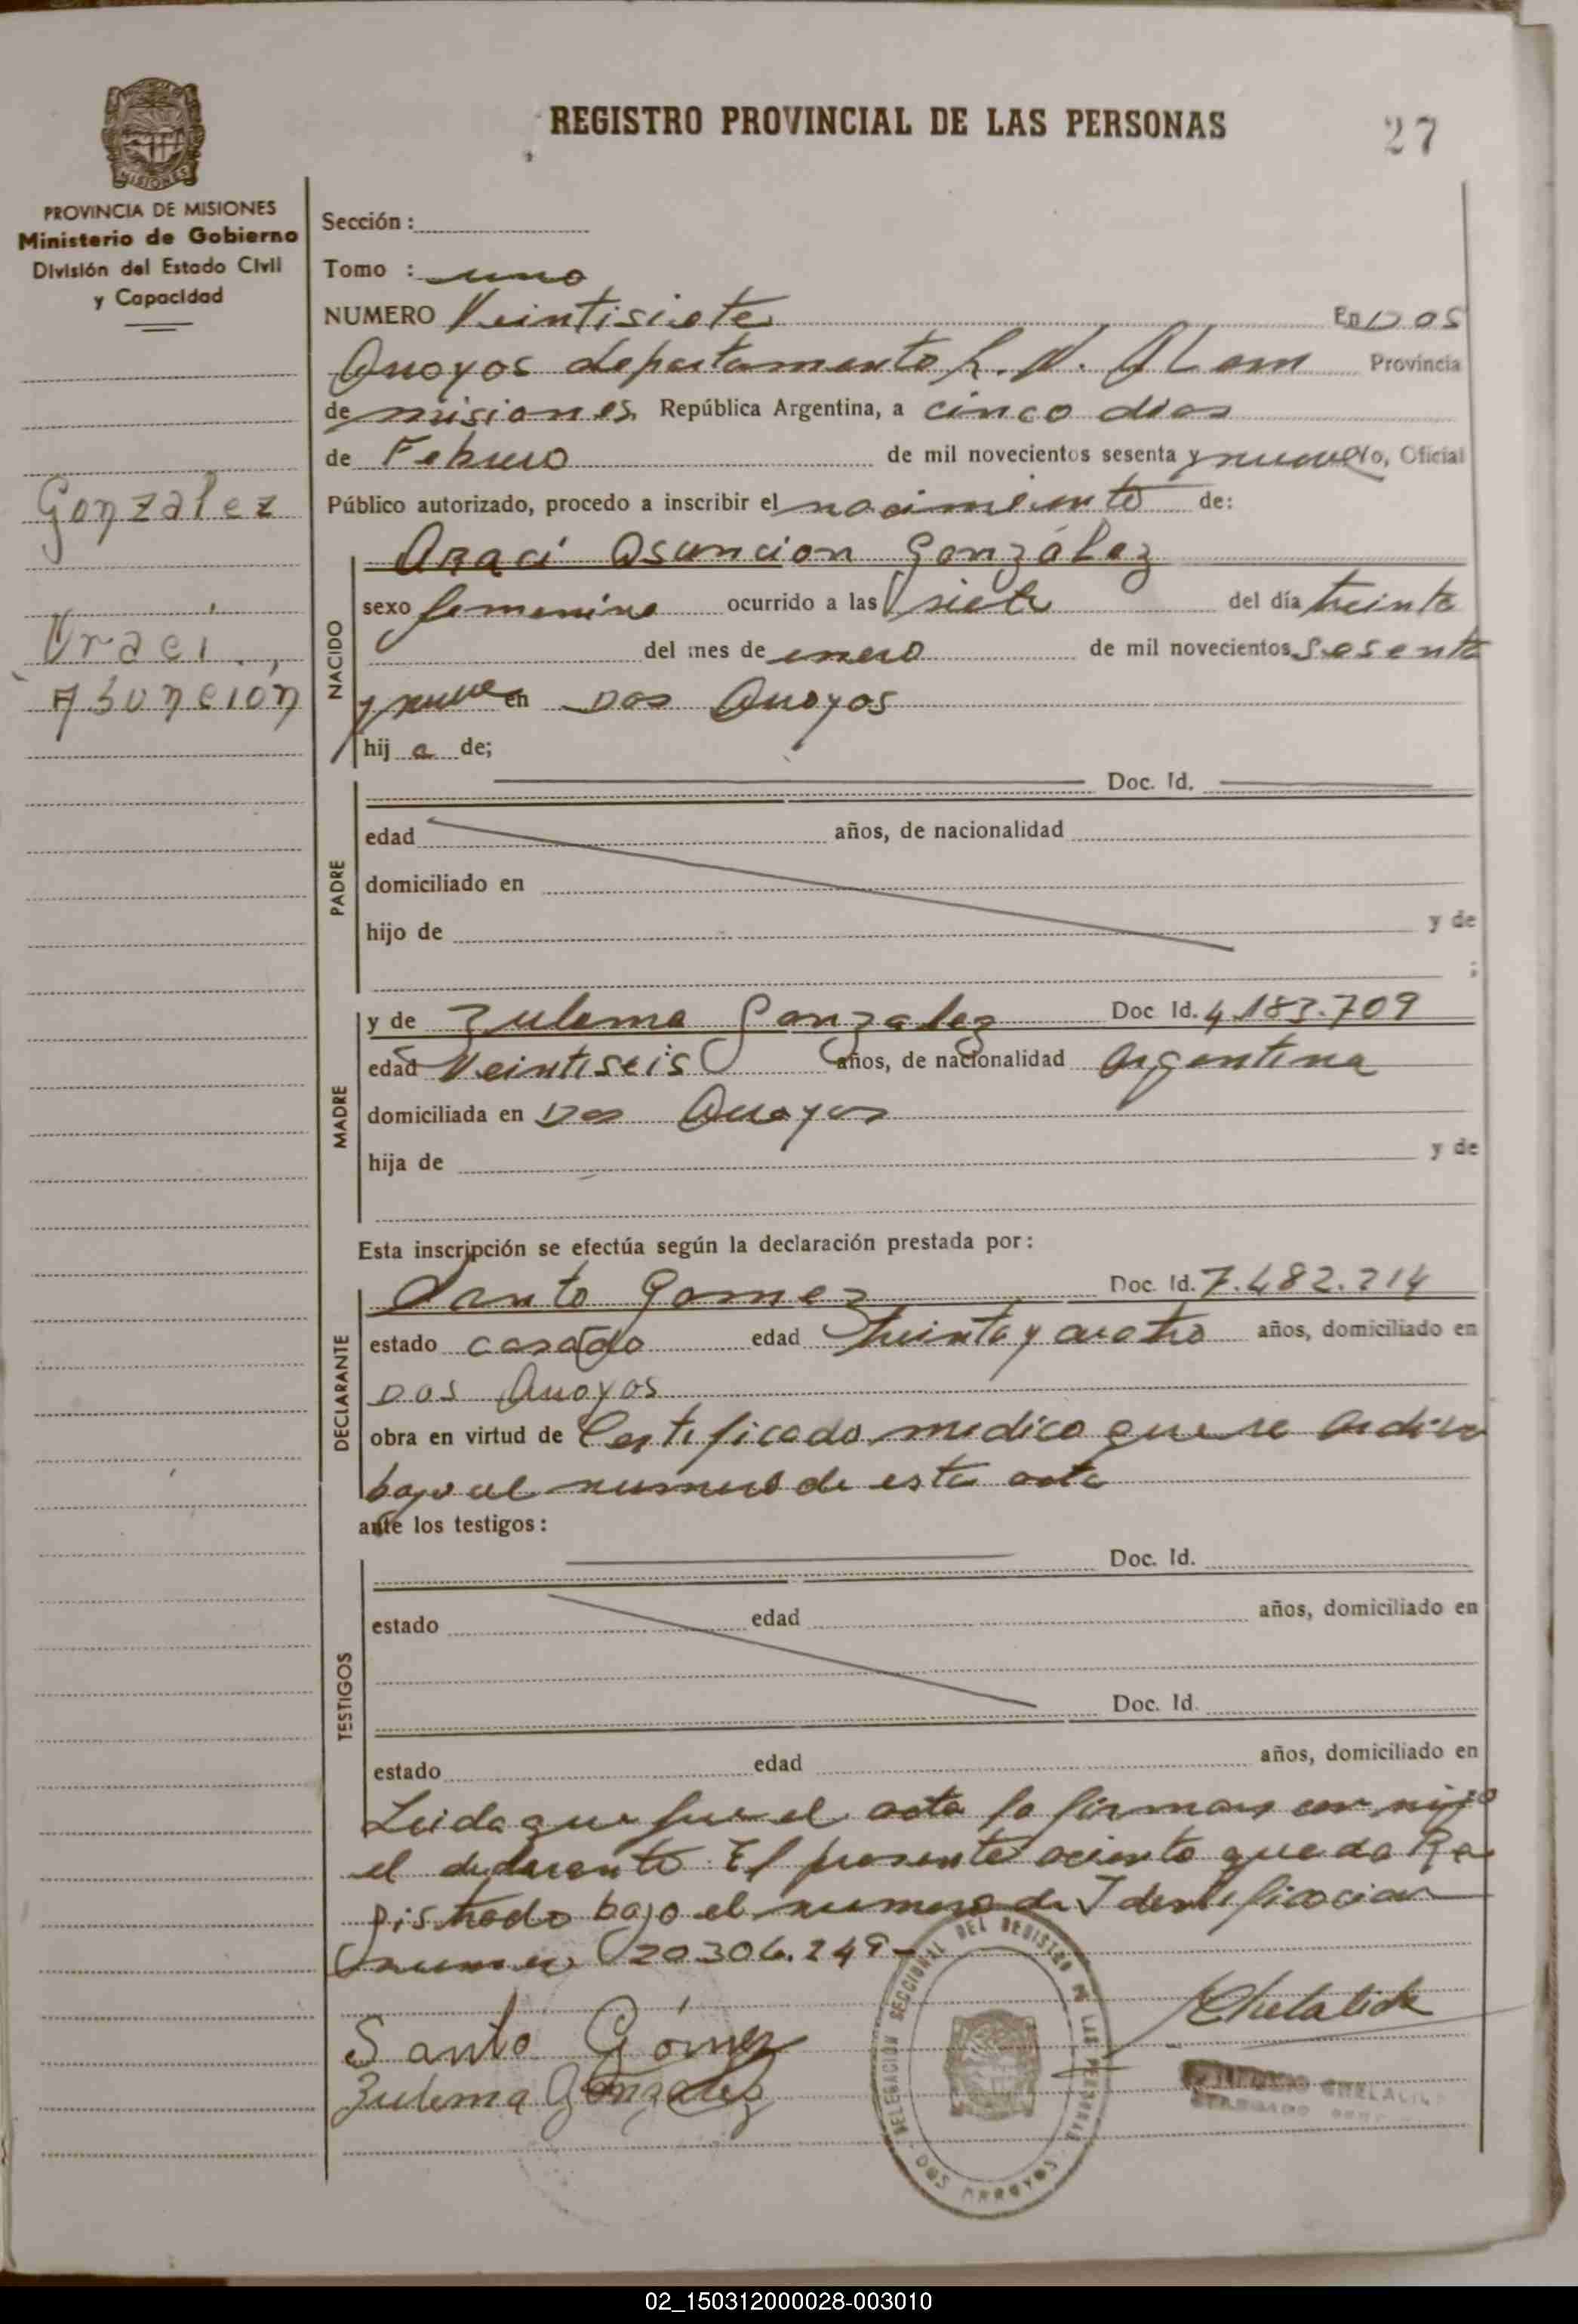 REGISTRO PROVINCIAL DE LAS PERSONAS
27
MISIONES
PROVINCIA DE MISIONES
Ministerio de Gobierno
División del Estado Civil
y Capacidad
González
Uraci,
Asunción
Sección :
Tomo : uno
NUMERO Veintisiete En Dos
Arroyos departamento L. N. Alem Provincia
de misiones, República Argentina, a cinco dias
de Febrero de mil novecientos sesenta y nueve yo, Oficial
Público autorizado, procedo a inscribir el nacimiento de:
Araci Asuncion González
NACIDO
sexo femenino ocurrido a las siete del día treinta
del mes de enero de mil novecientos sesenta
y nueve en Dos Arroyos
hij a de;
PADRE
Doc. Id.
edad años, de nacionalidad
domiciliado en
hijo de y de
;
MADRE
y de Zulema Gonzalez Doc Id. 4.183.709
edad Veintiseis años, de nacionalidad Argentina
domiciliada en Dos Arroyos
hija de y de
Esta inscripción se efectúa según la declaración prestada por:
DECLARANTE
Santo Gomez Doc. Id. 7.482.214
estado casado edad treinta y cuatro años, domiciliado en
Dos Arroyos
obra en virtud de Certificado medico que se archiva
bajo el numero de esta acta
ante los testigos:
TESTIGOS
Doc. Id.
estado edad años, domiciliado en
Doc. Id.
estado edad años, domiciliado en
Leida que fue el acta la firman con migo
el declarante El presente aciento queda Re
gistrado bajo el numero de Identificacion
numero 20.306.249-
Santo Gómez
Zulema González
DELEGACION SECCIONAL DEL REGISTRO DE LAS PERSONAS
DOS ARROYOS
Chelalick
02_150312000028-003010